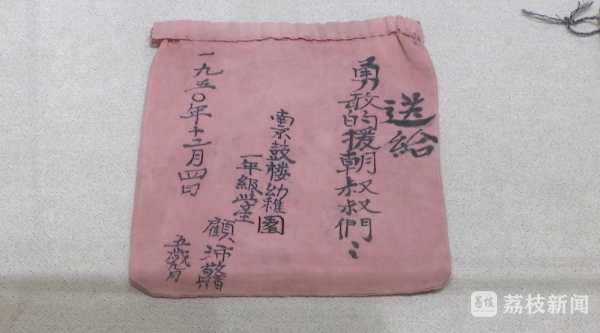 送給
勇敢的援朝叔叔們：
南京鼓楼幼稚園
一年級学生
顧
五歲
一九五〇年十二月四日
荔枝新闻